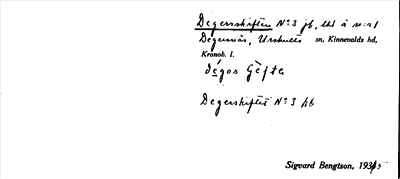 Degersskiften No 3 jb, lht å n:r 1
Degernäs, Urshults sn, Kinnevalds hd,
Kronob. l.
dégos Gèfta
Degerskiftet No 3 hb
Sigvard Bengtson, 1935